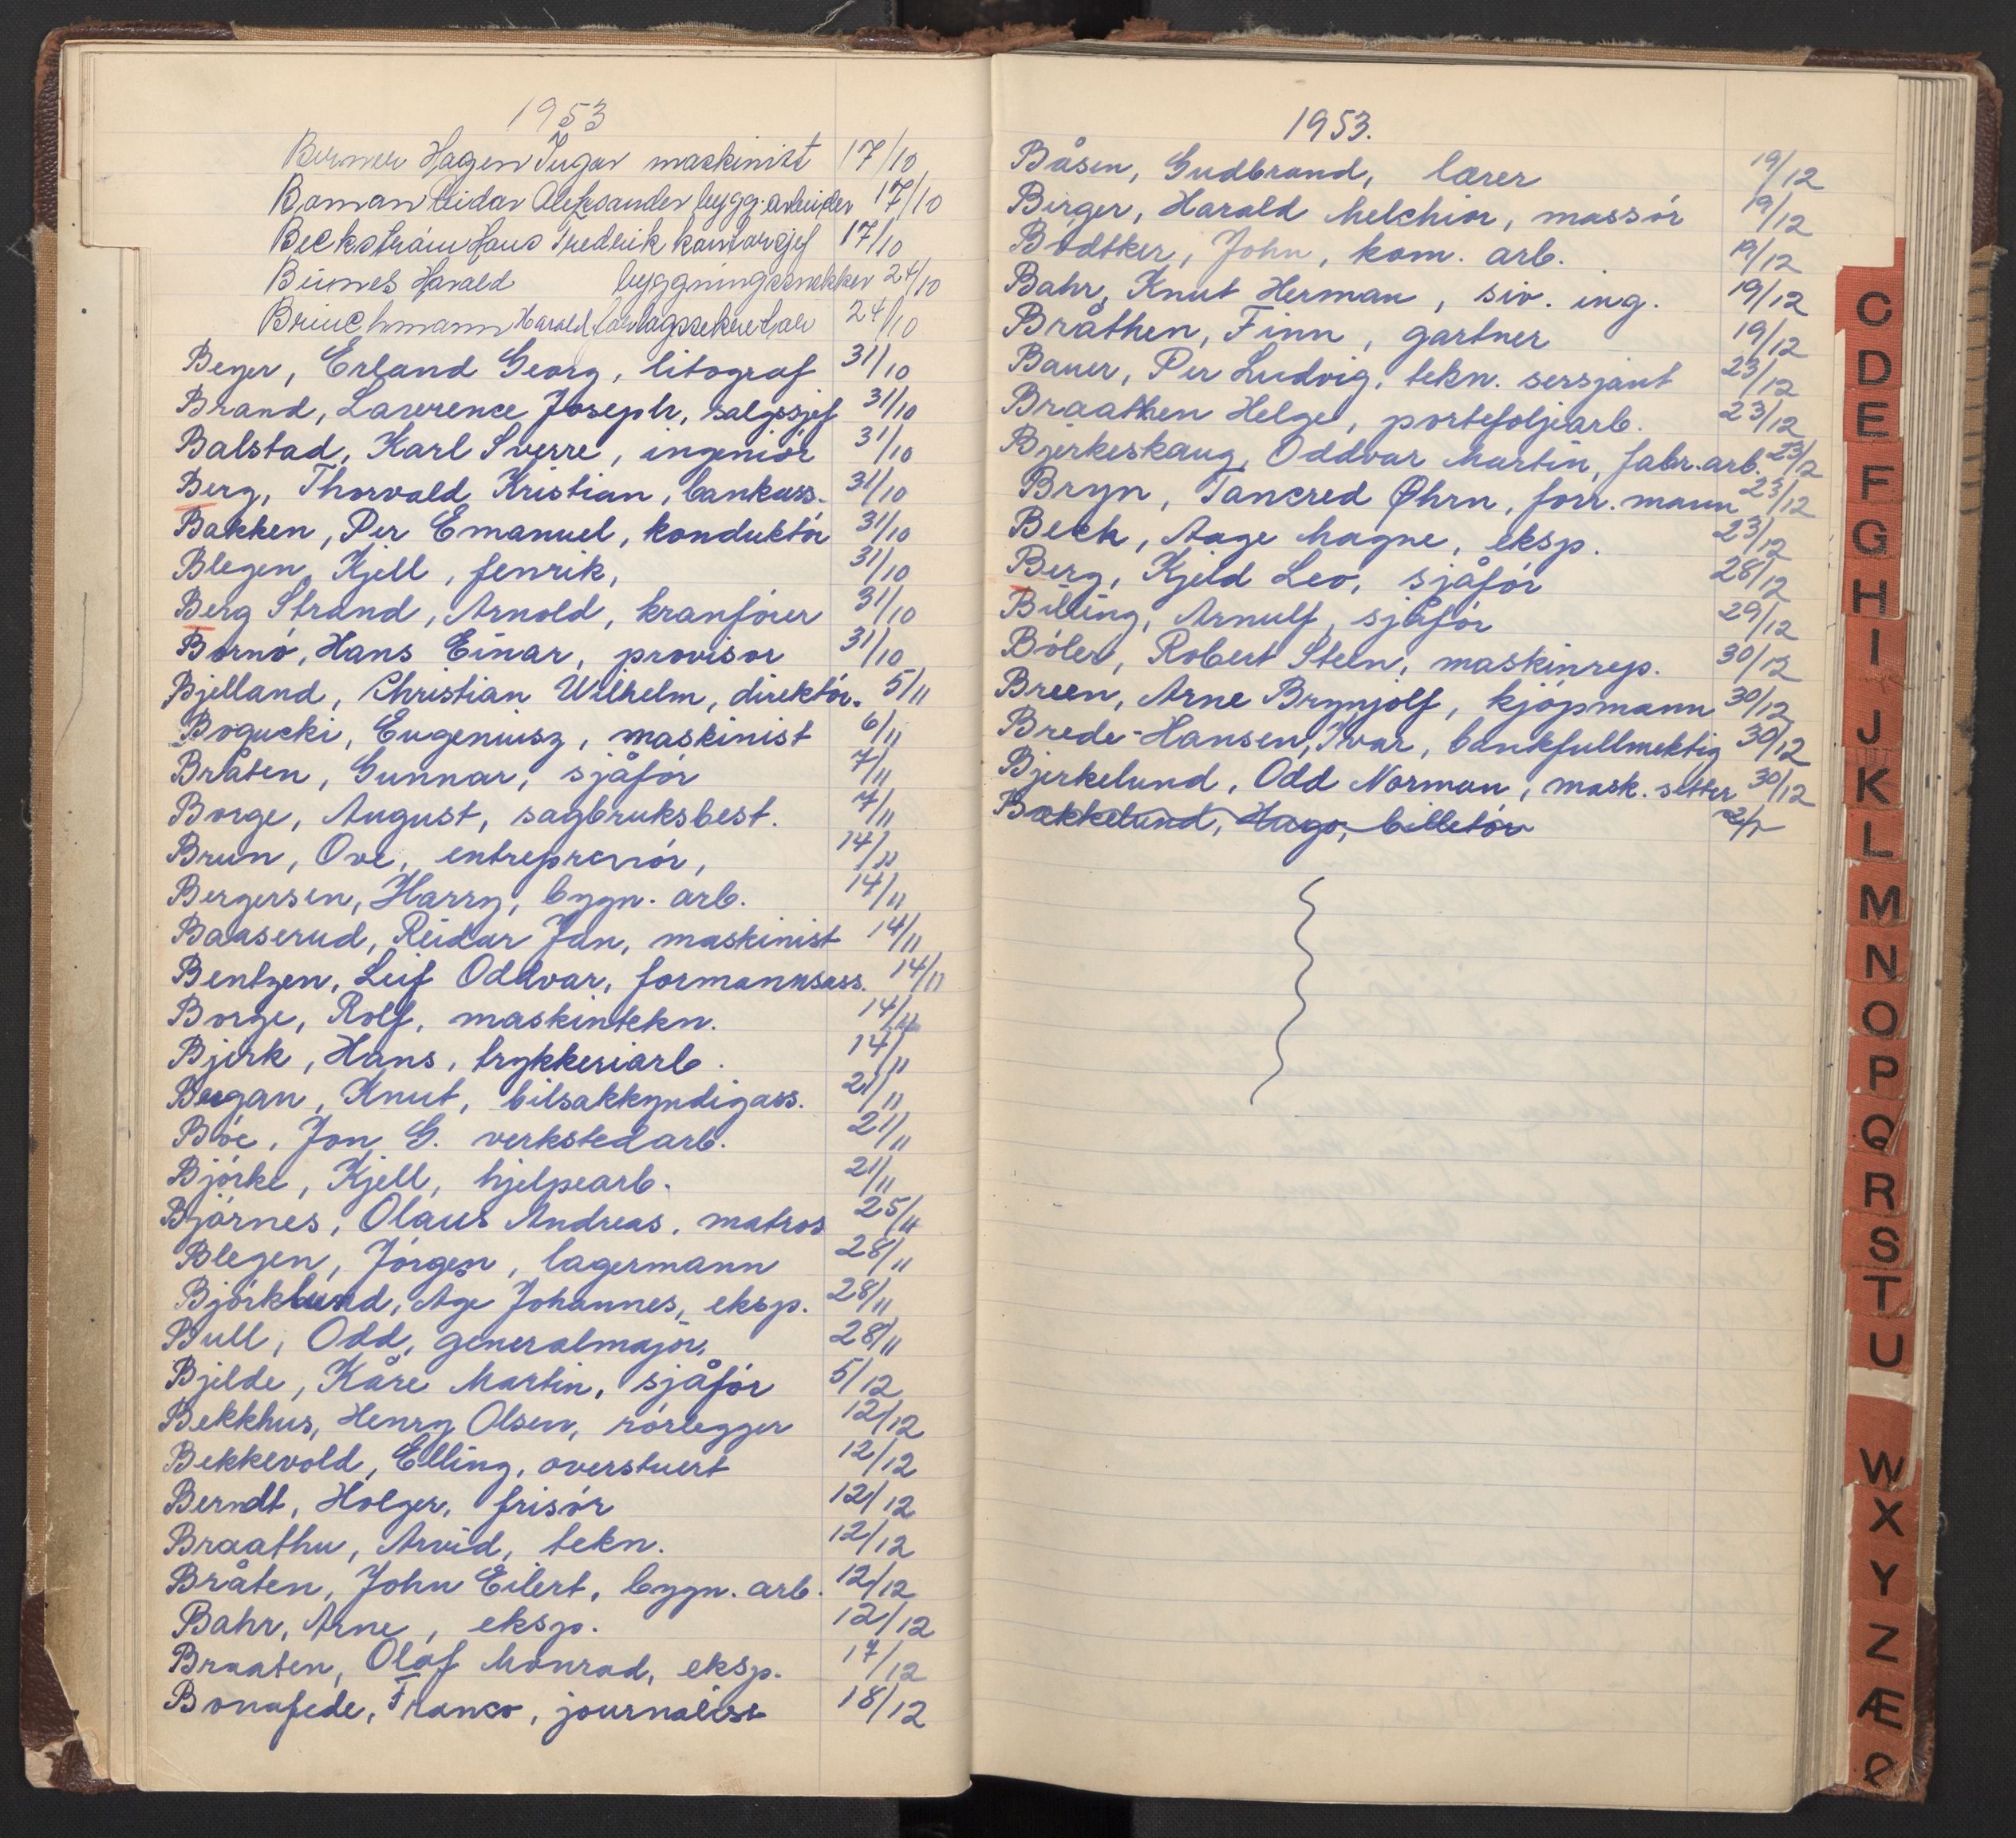 1953
Berner Hagen Ingar maskinist 17/10
Boman Reidar Aleksander bygg.arbeider 17/10
Beckstrøm Hans Fredrik kontorsjef 17/10
Buines Harald byggningssnekker 24/10
Brinchmann Harald forlagssekretær 24/10
Beyer, Erland Georg, litograf 31/10
Brand, Lawrence Joseph, salgssjef 31/10
Balstad, Karl Sverre, ingeniór 31/10
Berg, Thorvald Kristian, bankass. 31/10
Bakken, Per Emanuel, konduktór 31/10
Blegen, Kjell, fenrik, 31/10
Berg Strand, Arnold, kranfórer 31/10
Bornó, Hans Einar, provisor 31/10
Bjelland, Christian Wilhelm, direktór. 5/11
Bogucki, Eugeniusz, maskinist 6/11
Bråten, Gunnar, sjåfór 7/11
Borge, August, sagbruksbest. 7/11
Brun, Ove, entreprenór, 14/11
Bergersen, Harry, bygn. arb. 14/11
Baaserud, Reidar Jan, maskinist 14/11
Bentzen, Leif Oddvar, formannsass. 14/11
Borge, Rolf, maskintekn. 14/11
Bjerk, Hans, trykkeriarb. 14/11
Bergan, Knut, bilsakkyndigass. 21/11
Bóe, Jon G. verkstedarb. 21/11
Bjórke, Kjell, hjelpearb. 21/11
Bjórnes, Olaus Andreas, matros 25/11
Blegen, Jórgen, lagermann 28/11
Bjórklund, Age Johannes, eksp. 28/11
Bull, Odd, generalmajor, 28/11
Bjelde, Kåre Martin, sjåfór 5/12
Bekkhus, Henry Olsen, rórlegger 12/12
Bekkevold, Elling, overstuert 12/12
Berndt, Holger, frisór 12/12
Braathu, Arvid, tekn. 12/12
Bråten, John Eilert, bygn. arb. 12/12
Bahr, Arne, eksp. 12/12
Braaten, Olaf Monrad, eksp. 17/12
Bonafede, Franco, journalist 18/12
1953.
Båsen, Gudbrand, lærer 19/12
Birger, Harald Melchior, massór 19/12
Bódtker, John, kom. arb. 19/12
Bahr, Knut Herman, siv. ing. 19/12
Bråthen, Finn, gartner 19/12
Bauer, Per Ludvig, tekn. sersjant 23/12
Braathen Helge, portefoljearb. 23/12
Bjerkeskaug, Oddvar Martin, fabr.arb. 23/12
Bryn, Tancred Øhrn, forr. mann 23/12
Bech, Aage Magne, eksp. 23/12
Berg, Kjeld Leo, sjåfór 28/12
Billing, Arnulf, sjåfór 29/12
Bóler, Robert Stein, maskinrep. 30/12
Breen, Arne Brynjolf, kjópmann 30/12
Brede-Hansen, Ivar, bankfullmektig 30/12
Bjerkelund, Odd Norman, mask. setter 30/12
Bækkelund, Hago, billetór
C
D
E
F
G
H
I
J
K
L
M
N
O
P
Q
R
S
T
U
W
X
Y
Z
Æ